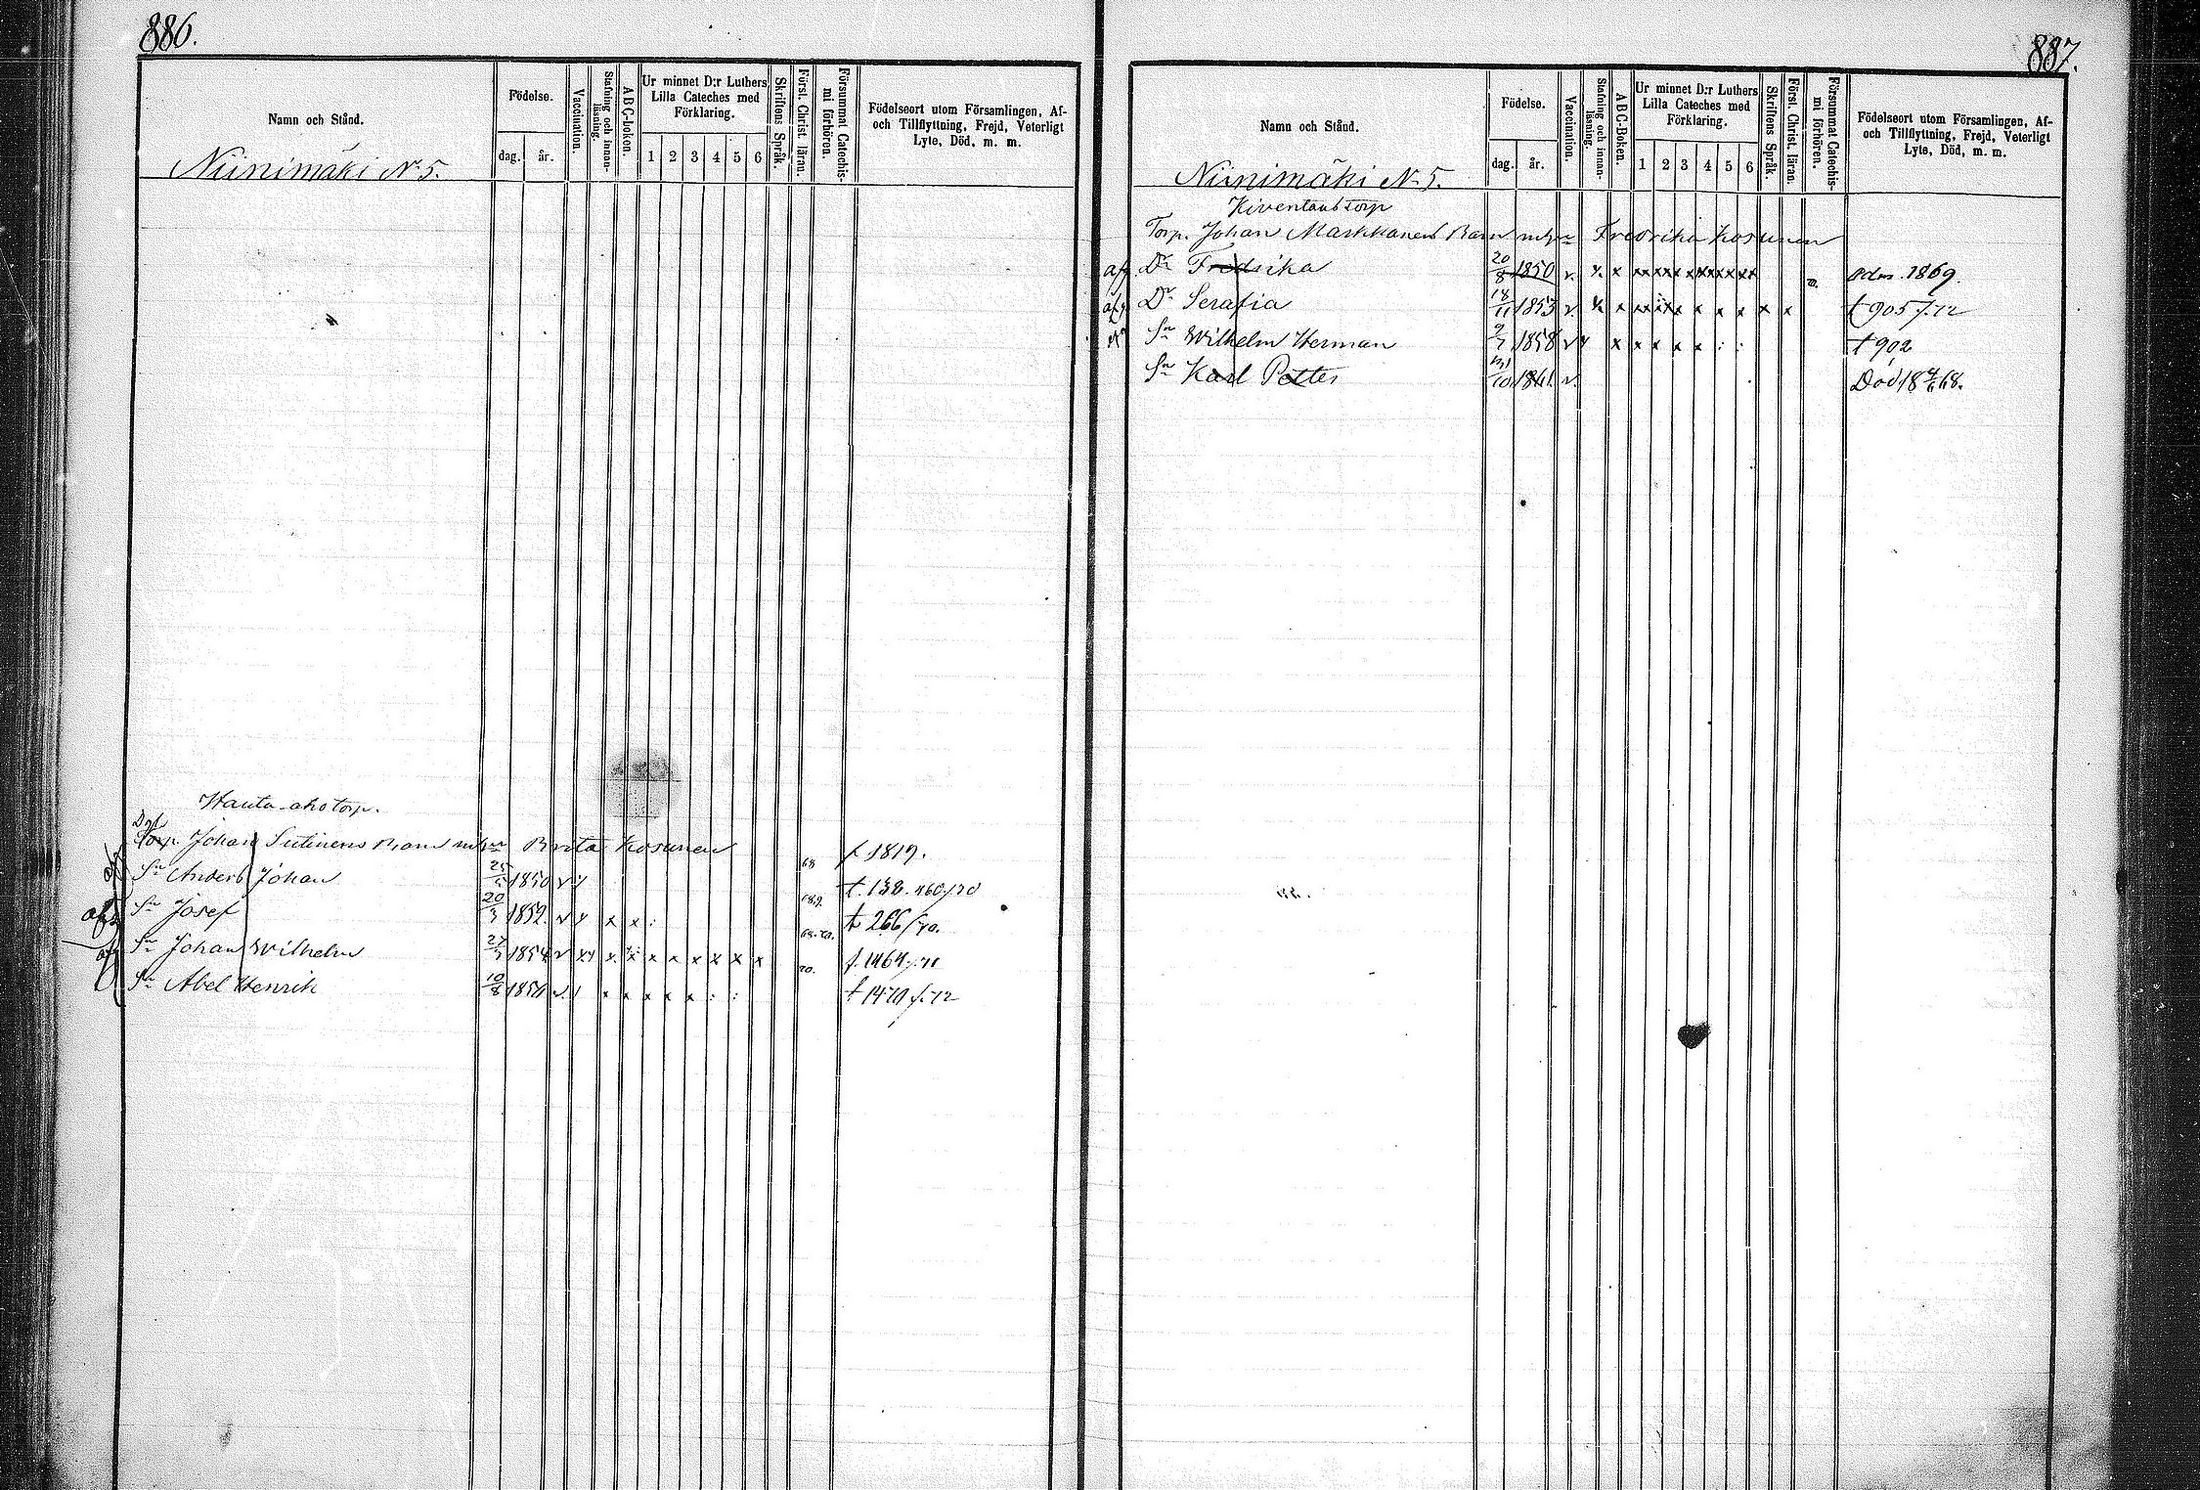 886.
Namn och Stånd.
Födelse.
dag. år.
Vaccination.
Stafning och innan-läsning.
ABC-boken.
Ur minnet D:r Luthers
Lilla Cateches med
Förklaring.
1 2 3 4 5 6
Skriftens Språk.
Först. Christ. läran.
Försummat Catechis-mi förhören.
Födelseort utom Församlingen, Af-
och Tillflyttning, Frejd, Veterligt
Lyte, Död, m. m.
Niinimäki N. 5.
Hauta-aho torp.
Torp. Johan Sutinens Barn Brita Kosunen f 1819.
Sn Anders Johan 1850 v t. 138.
Sn Josef 20/3 1852 v x x : t 266/70.
Sn Johan Wilhelm 1854 v x x x x x x x x f. 1464
Sn Abel Henrik 10/8 x x x x x : : t 1470 f. 72
887.
Namn och Stånd.
Födelse.
dag. år.
Vaccination.
Stafning och innan-läsning.
ABC-Boken.
Ur minnet D:r Luthers
Lilla Cateches med
Förklaring.
1 2 3 4 5 6
Skriftens Språk.
Först. Christ. läran.
Försummat Catechis-mi förhören.
Födelseort utom Församlingen, Af-
och Tillflyttning, Frejd, Veterligt
Lyte, Död, m. m.
Niinimäki N. 5.
Kiventaus torp
Torp. Johan Markkanens Barn Fredrika Kosunen
afg Dr Fredrika 20/8 1850 v. 1869.
afg Dr Serafia 18/11 1853 v. t 905 f. 72
Sn Wilhelm Herman 1858 v x x x x x : : t 902
Sn Karl Petter 1861 v. Död 18 4/6 68.